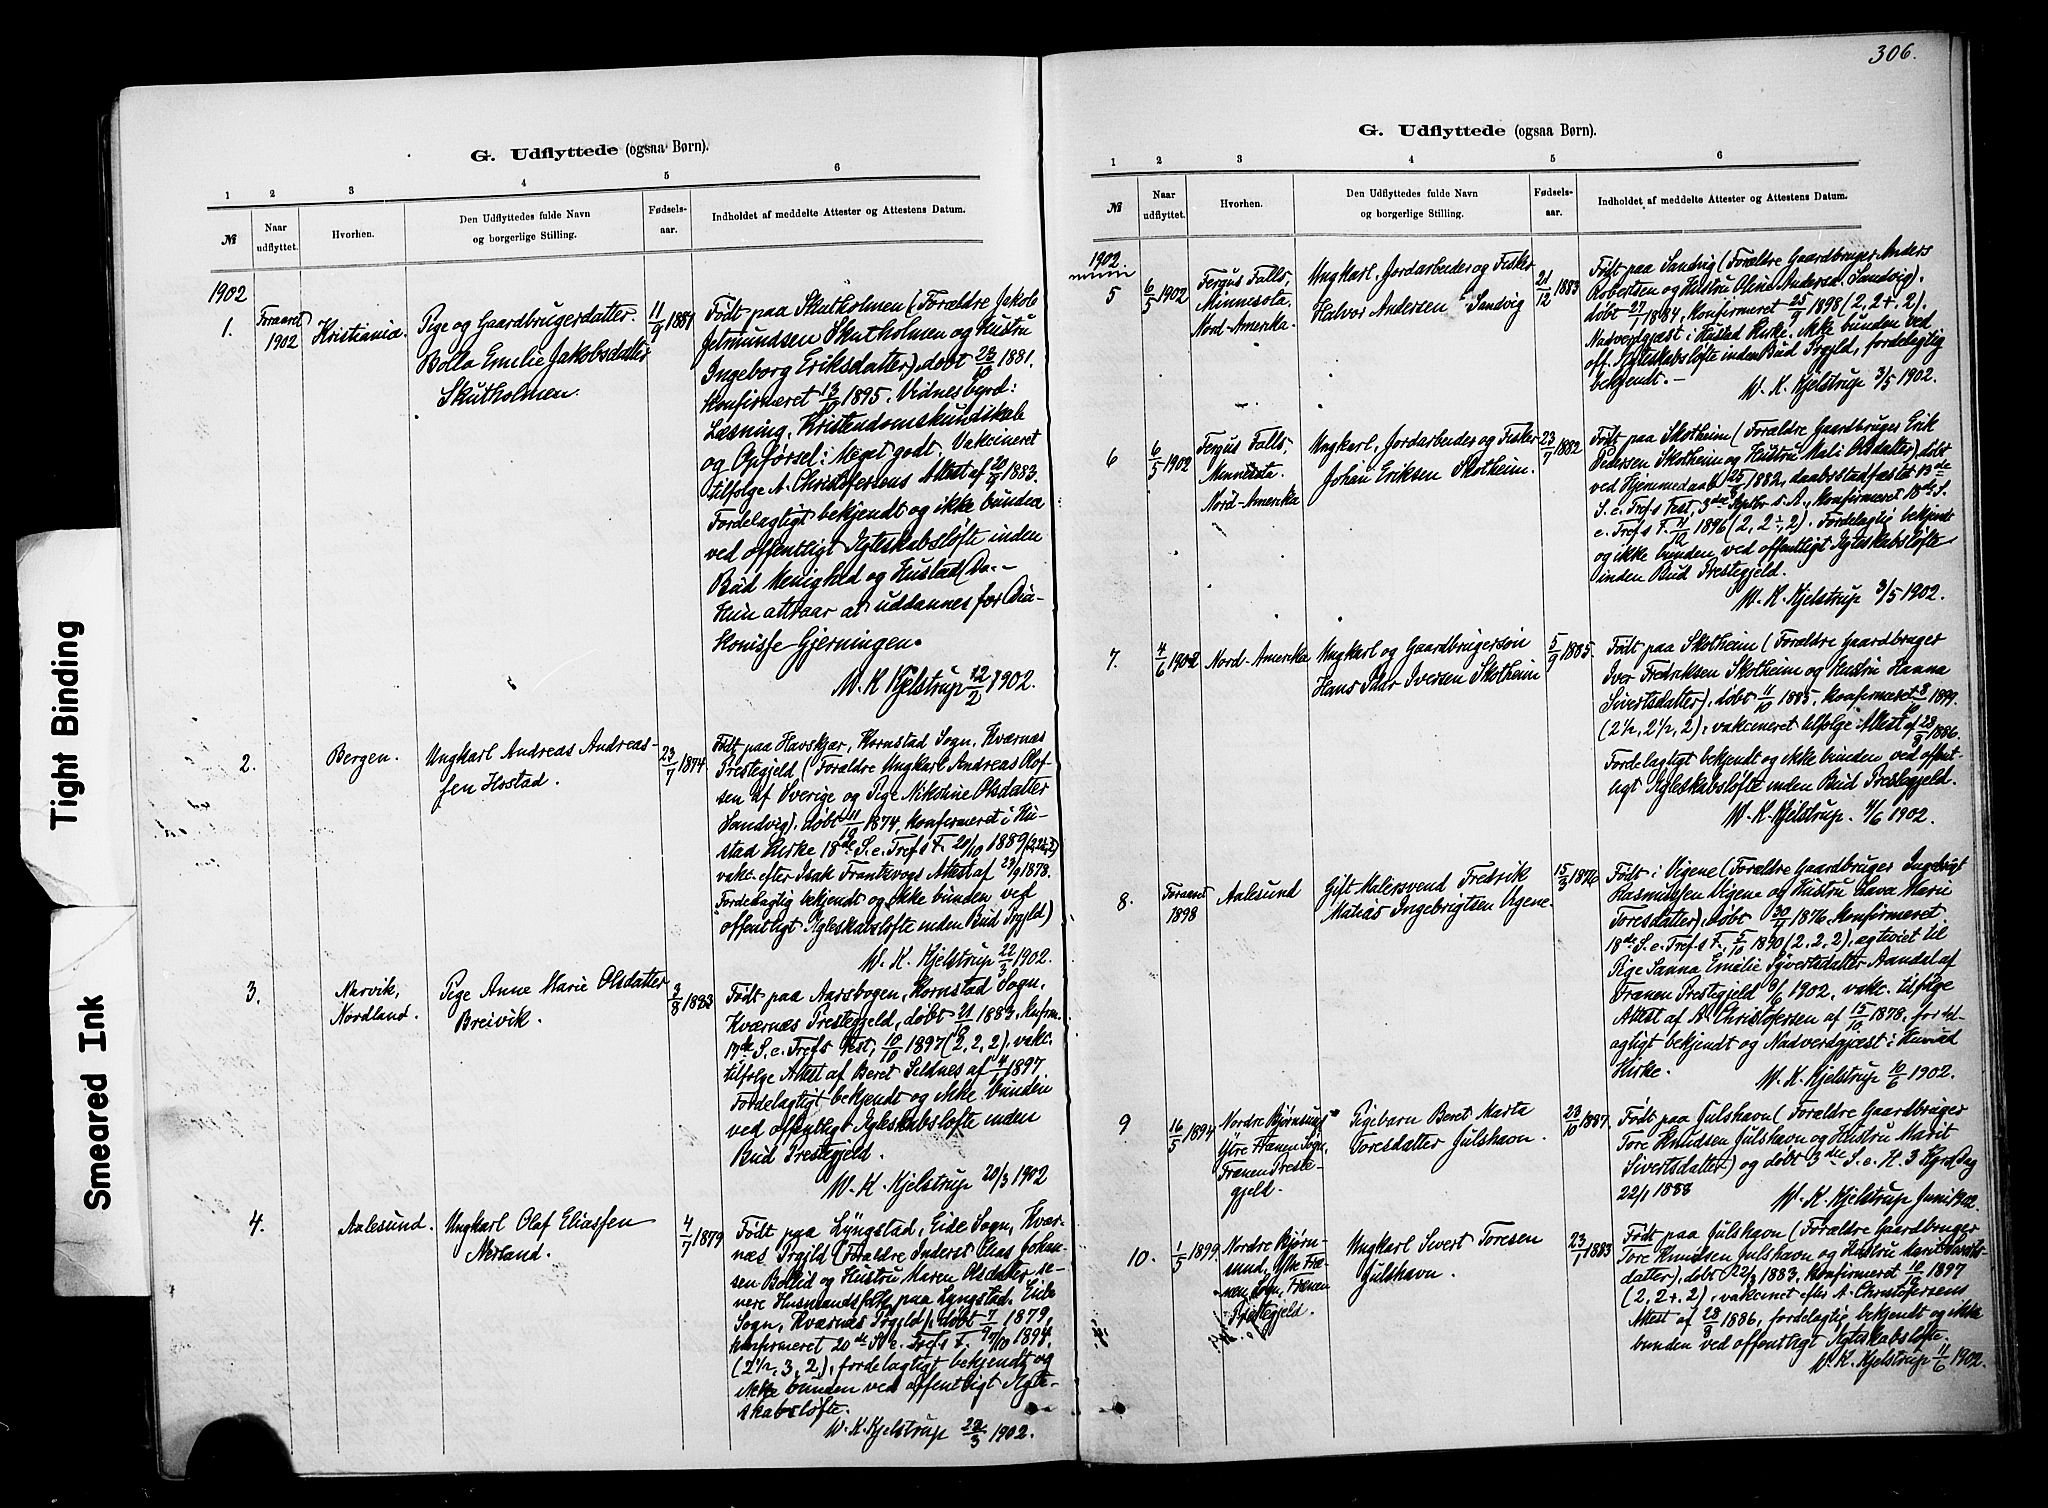 306.
G. Udflyttede (ogsaa Børn).
1 2 3 4 5 6
№
Naar udflyttet.
Hvorhen.
Den Udflyttedes fulde Navn og borgerlige Stilling.
Fødsels-aar.
Indholdet af meddelte Attester og Attestens Datum.
1902
1.
Foraaret
1902
Kristiania.
Pige og Gaardbrugerdatter.
Bolla Emelie Jakobsdatter
Skutholmen.
11/9 1881
Født paa Skutholmen (Forældre Jakob
Jetmundsen Skutholmen og Hustru
Ingeborg Eriksdatter), døbt 23/10 1881.
Konfirmeret 13/10 1895. Vidnesbyrd:
Læsning, Kristendomskundskab
og Opførsel: Meget godt. Vakcineret
tilfølge A. Christofersens Attest af 20/9 1883.
Fordelagtigt bekjendt og ikke bunden
ved offentligt Ægteskabsløfte inden
Bud Menighed og Hustad
Hun attraar at uddannes for Dia-
konisse-Gjerningen.
W. K. Kjelstrup 12/2 1902.
2.
Bergen.
Ungkarl Andreas Andreas-
sen Hostad.
23/7 1874
Født paa Havskjær, Kornstad Sogn, Kværnæs
Prestegjeld (Forældre Ungkarl Andreas Olof-
sen af Sverige og Pige Nikoline Olsdatter
Sandvig), døbt 11/10 1874, konfirmeret i Hu-
stad Kirke 18de S. e. Trefs F. 20/10 1889
vakc. efter Isak Frantzvogs Attest af 23/9 1878.
Fordelagtig bekjendt og ikke bunden ved
offentligt Ægteskabsløfte inden Bud Prgjld)
W. K. Kjelstrup 22/3 1902.
3.
Narvik,
Nordland.
Pige Anne Marie Olsdatter
Breivik.
3/8 1883
Født paa Aarsbogen, Kornstad Sogn,
Kværnæs Prestegjeld, døbt 21/10 1883, Konfirm.
17de S. e. Trefs Fest, 10/10 1897 (2, 2, 2), vakc.
tilfølge Attest af Beret Seldnes af 1897
Fordelagtigt bekjendt og ikke bunden
ved offentligt Ægteskabsløfte inden
Bud Prestegjeld.
W. K. Kjelstrup 20/3 1902
4.
Aalesund.
Ungkarl Olaf Eliassen
Nerland.
4/7 1879
Født paa Lyngstad, Eide Sogn, Kvær-
næs Prgjld (Forældre Inderst Elias Johan-
sen Bollid og Hustru Maren Olsdatter se-
nere Husmandsfolk paa Lyngstad, Eide
Sogn, Kværnæs Prgjld), døbt 7/9 1879,
konfirmeret 20de S. e. Trefs F. 7/10 1894.
(2½, 3, 2), fordelagtigt bekjendt og
ikke bunden ved offentligt Ægte-
skabsløfte.
W. K. Kjelstrup 22/3 1902.
G. Udflyttede (ogsaa Børn).
1 2 3 4 5 6
№
Naar udflyttet.
Hvorhen.
Den Udflyttedes fulde Navn og borgerlige Stilling.
Fødsels-aar.
Indholdet af meddelte Attester og Attestens Datum.
1902
5
6/5 1902
Fergus Falls,
Minnesota.
Nord-Amerika.
Ungkarl, Jordarbeider og Fisker
Halvor Andersen Sandvig
21/12 1883
Født paa Sandvig (Forældre Gaardbruger Anders
Robertsen og Hustru Olina Andersd. Sandvig).
døbt 27/1 1884, Konfirmeret 25/9 1898 (2, 2+, 2).
Nadverdgjæst i Hustad Kirke, ikke bunden ved
off. Ægteskabsløfte inden Bud Prgjld, fordelagtig
bekjendt.-
W. K. Kjelstrup 3/5 1902.
6
6/5 1902
Fergus Falls,
Minnesota.
Nord-Amerika
Ungkarl, Jordarbeider og Fisker
Johan Eriksen Skotheim.
23/7 1882
Født paa Skotheim (Forældre Gaardbruger Erik
Pedersen Skotheim og Hustru Mali Olsdatter), døbt
ved Hjemmedaab 25/8 1882, daabsstadfæstet 13de
S. e. Trefs Fest, 3die Septbr s. A., Konfirmeret 18de S.
e. Trefs F. 4/10 1896 (2, 2÷, 2). Fordelagtig bekjendt
og ikke bunden ved offentligt Ægteskabsløfte
inden Bud Prestegjeld.
W. K. Kjelstrup 3/5 1902.
7.
4/6 1902
Nord-Amerika
Ungkarl og Gaardbrugersøn
Hans Peder Iversen Skotheim
5/9 1885.
Født paa Skotheim (Forældre Gaardbruger
Iver Fredriksen Skotheim og Hustru Hanna
Sivertsdatter), døbt 11/10 1885, Konfirmeret 8/10 1899.
(2½, 2½, 2), vakcineret tilfølge Attest af 28/9 1886.
Fordelagtigt bekjendt og ikke bunden ved offent-
ligt Ægteskabsløfte inden Bud Prestegjeld.
W. K. Kjelstrup. 4/6 1902.
8.
Foraaret
1898
Aalesund
Gift Malersvend Fredrik
Matias Ingebrigtsen Vigene.
15/3 1876
Født i Vigene (Forældre Gaardbruger Ingebrigt
Rasmussen Vigene og Hustru Lava Marie
Toresdatter), døbt 30/4 1876, Konfirmeret
18de S. e. Trefs F., 1890 (2, 2, 2), ægteviet til
Pige Sanna Emelie Syvertsdatter Aandal af
Frænen Prestegjeld 9/6 1902, vakc. tilfølge
Attest af A. Christofersen af 15/10 1878, fordel-
agtigt bekjendt og Nadverdgjæst i Hustad
Kirke.
W. K. Kjelstrup 10/6 1902.
9
16/5 1894
Nordre Bjørnsund,
Ytre Frænen Sogn,
Frænen Preste-
gjeld.
Pigebarn Beret Marta
Toresdatter Julshavn.
23/10 1887.
Født paa Julshavn (Forældre Gaardbruger
Tore Knudsen Julshavn og Hustru Marit
Sivertsdatter) og døbt 3die S. e. H. 3 Kgrs Dag
22/1 1888
W. K. Kjelstrup Juni 1902.
10.
1/5 1899
Nordre Bjørn-
sund, Ytre Fræ-
nen Sogn, Frænen
Prestegjeld.
Ungkarl Sivert Toresen
Julshavn.
23/1 1883
Født paa Julshavn (Forældre Gaardbruger
Tore Knudsen Julshavn og Hustru Marit Siverts-
datter), døbt 1883, Konfirmeret 10/10 1897
(2, 2+, 2), vakcinet efter A. Christofersens
Attest af 23/8 1886, fordelagtig bekjendt og ikke
bunden ved offentligt Ægteskabsløfte.
W. K. Kjelstrup 11/6 1902.
Tight Binding
Smeared Ink